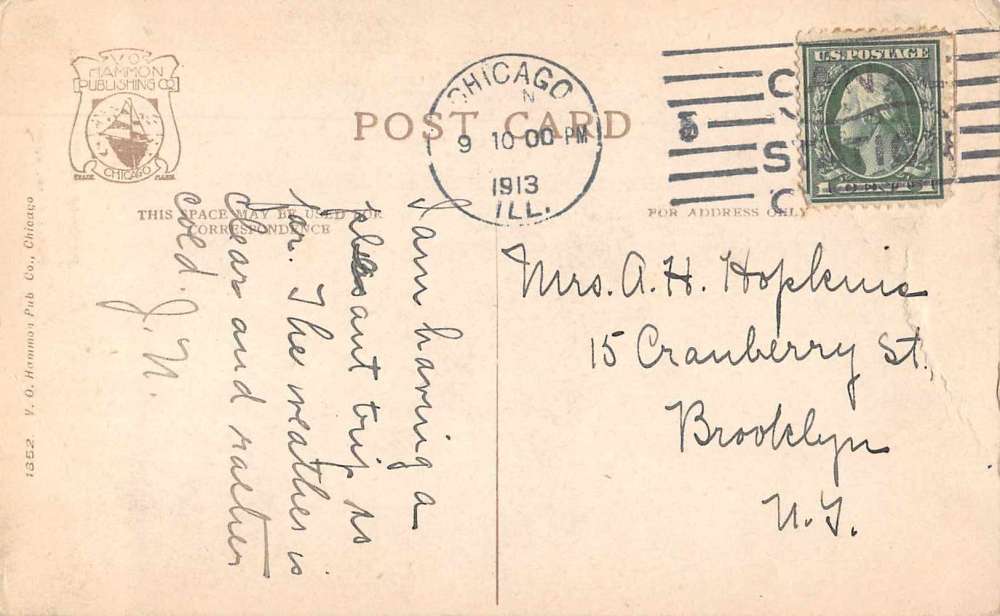 V.O.
HAMMON
PUBLISHING CO
CHICAGO
TRADE MARK
POST CARD
CHICAGO
N
9 10-00 PM
1913
ILL.
U.S. POSTAGE
THIS SPACE MAY BE USED FOR
CORRESPONDENCE
FOR ADDRESS ONLY
I am having a
pleasant trip so
far. The weather is
clear and rather
cold. J. N.
Mrs. A. H. Hopkins
15 Cranberry St.
Brooklyn
N. Y.
1352 V. O. Hammon Pub Co., Chicago